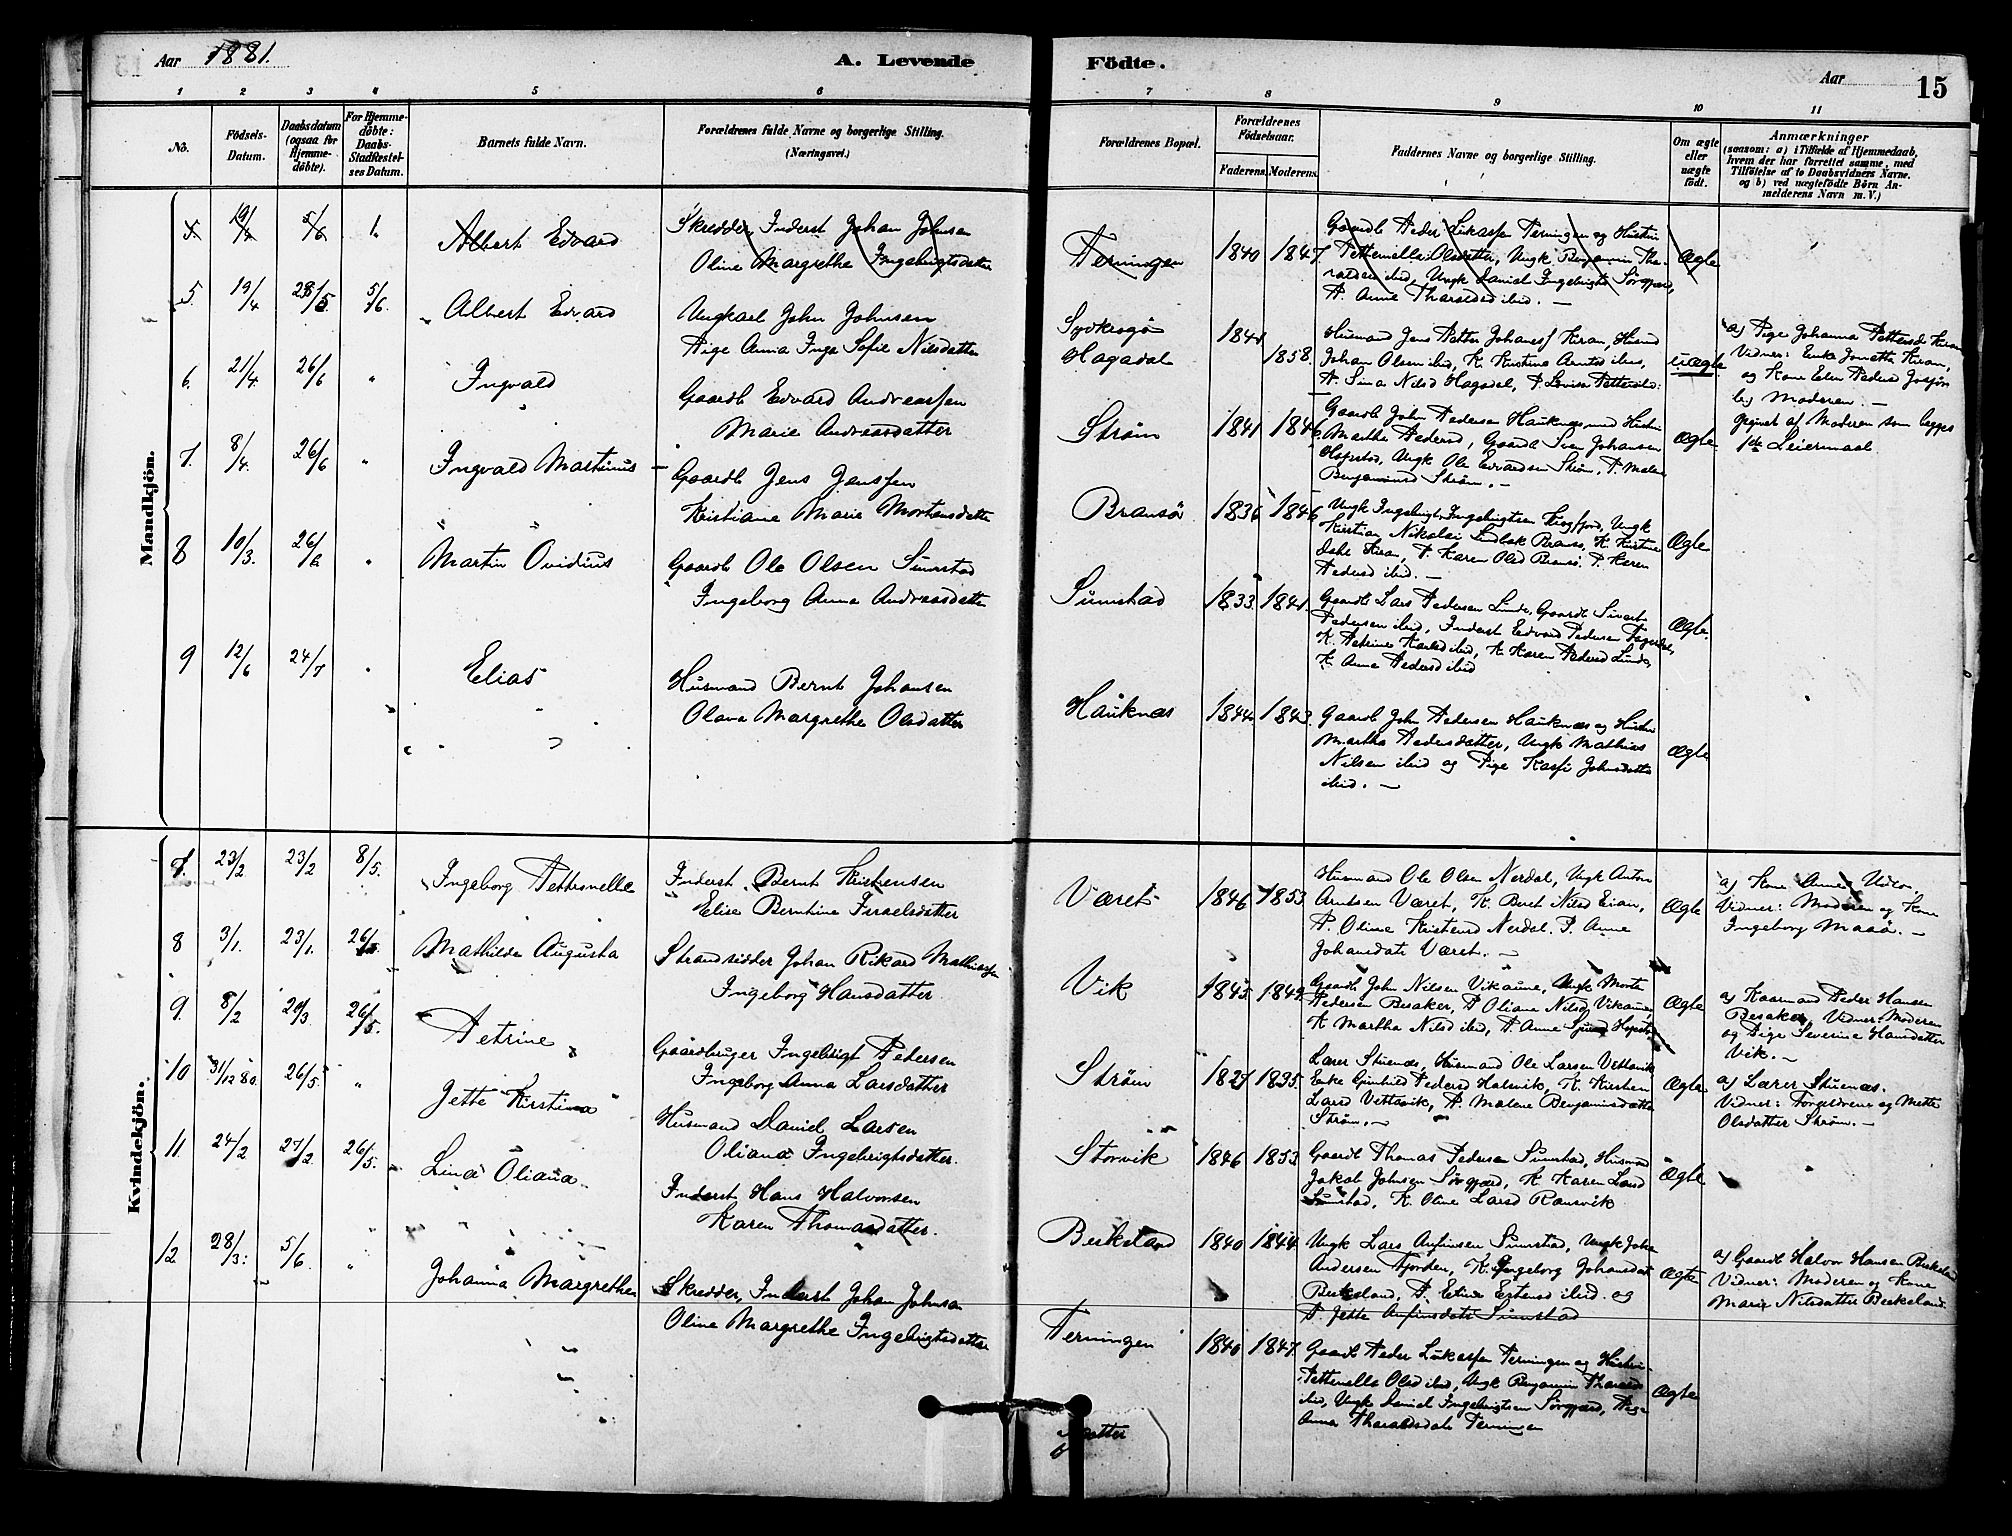 Aar 1881.
A. Levende Födte.
Aar
15
1 2 3 4 5 6 7 8 9 10 11
No.
Födsels-Datum.
Daabsdatum (ogsaa for Hjemmedöbte).
For Hjemmedöbte: Daabs-Stadfæstelses Datum.
Barnets fulde Navn.
Forældrenes fulde Navne og borgerlige Stilling.
(Næringsvei.)
Forældrenes Bopæl.
Forældrenes Födselsaar.
Faderens. Moderens.
Faddernes Navne og borgerlige Stilling.
Om ægte eller uægte födt.
Anmærkninger
(saasom: a) i Tilfælde af Hjemmedaab,
hvem der har forrettet samme, med
Tilföielse af to Daabsvidners Navne.
og b) ved uægtefödte Börn An-
melderens Navn m.V.)
Mandkjön.
5. 19/4 5/6 Albert Edvard
Skredder, Inderst Johan Johnsen
Oline Margrethe Ingebrigtsdatter
Terningen 1840 1847.
Gaardb Peder Lukassen Terningen og Hustru
Petternella Olsdatter, Ungk Benjamin
ibid, Ungk Daniel Ingebrigts Sørgjærd,
P. Anne ibid. —
Ægte
5. 19/4 28/5 5/6 Albert Edvard
Ungkarl John Johnsen
Pige Anna Inga Sofie Nilsdatter
Hagadal 1858.
Husmand Jens Petter Johanes Kiran,
Johan Olsen ibid, K. Kristina Arntsd ibid,
P. Sina Nilsd Hagadal, P. Lovise
uægte
a) Pige Johanna Pettersd Kiran
Vidner: Enke Kiran,
og Kone Elen Pedersd
b) Moderen. —
af Moderen som begges
1ste Leiermaal.
6. 21/4 26/6 " Ingvald
Gaardb Edvard Andreassen
Marie Andreasdatter
Strøm 1841 1846.
Gaardb John Pedersen Hauknes med Hustru
Martha Pedersd, Gaardb Sven Johansen
Hopstad, Ungk Ole Edvardsen Strøm, P. Malene
Benjaminsd Strøm. —
Ægte.
7. 8/4. 26/6 " Ingvald Martinus
Gaardb Jens Jenssen
Kristiane Marie Mortensdatter
Bransø 1836 1846
Ungk Ingebrigt Ingebrigtsen Ungk
Kristian Nikolai Bransø, K. Kristine
Dahl Kiran, P. Karen Olsd Bransø. P. Karen
Pedersd ibid. —
Ægte
8 10/3. 26/6 " Martin Ovidius
Gaardb Ole Olsen Sumstad
Ingeborg Anna Andreasdatter
Sumstad 1833. 1841.
Gaardb Lars Pedersen Lunde, Gaardb Sivert
Pedersen ibid, Inderst Edvard Pedersen
K. Petrine ibid, K. Karen Pedersd Lunde,
K. Anne Pedersd ibid
Ægte.
9 12/6 24/7 " Elias
Husmand Bernt Johansen
Olava Margrethe Olsdatter
Hauknes 1844 1843.
Gaardb John Pedersen Hauknes og Hustru
Martha Pedersdatter, Ungk Mathias
Nilsen ibid og Pige Johnsdatter
ibid. —
Ægte
Kvindekjön.
7. 23/2 23/2 8/5. Ingeborg Petternelle
Inderst Bernt Kristensen
Elise Berntine Israelsdatter
Været 1846 1853
Husmand Ole Olsen Nerdal, Ungk Anton
Arntsen Været, K. Beret Nilsd Eian,
P. Oline Kristensd Nerdal. P. Anne
Johansdatr Været. —
Ægte
a) Kone Anne
Vidner: Moderen og Kone
Ingeborg —
8 3/1. 23/1. 26/5. Mathilde Augusta
Strandsidder Johan Rikard Mathiassen
Ingeborg Hansdatter.
Vik 1845. 1849.
Gaardb John Nilsen Vikaune, Ungk
Pedersen Besaker, P Oliane Nilsd Vikaune
K Martha Nilsd ibid, P. Anne
Ægte
a) Peder Hansen
Besaker, Vidner: Moderen
og Pige Severine Hansdatter
Vik. —
9. 8/2 20/3 26/5. Petrine
Gaardbruger Ingebrigt Pedersen
Ingeborg Anna Larsdatter
Strøm 1827 1835.
Lærer Stuenæs, Husmand Ole Larsen Vettavik
Enke Gunhild Pedersd K. Kirsten
Larsd Vettavik, P. Malene Benjaminsdatter
Strøm. —
Ægte
a) Lærer Stuenæs.
Vidner: Forældrene og Mette
Olsdatter Strøm. —
10 31/12 80. 26/5. " Jette Kirstina
Husmand Daniel Larsen
Oliana Ingebrigtsdatter.
Storvik 1846 1853
Gaardb Thomas Pedersen Sumstad, Husmand
Jakob Johnsen Sørgjærd, K Karen Larsd
Sumstad, K. Oline Larsd Ransvik
Ægte
11. 24/2 27/2. 26/5. Lina Oliana
Inderst Hans Halvorsen
Karen Thomasdatter.
Berkeland 1840 1844
Ungk Lars Anfinsen Sumstad, Ungk
Andersen Fjorden, K. Ingeborg Johansdat
Berkeland, P. Eline Estensd ibid. og
P. Jette Anfinsdatr Sumstad
Ægte
a) Gaardb Halvor Hansen Berkeland
Vidner: Moderen og Kone
Marie Nilsdatter Berkeland.
12. 28/3. 5/6. " Johanna Margrethe
Skredder, Inderst Johan Johnsen
Oline Margrethe Ingebrigtsdatter
Terningen 1840 1847.
Gaardb Peder Lukassen Terningen og Hustru
Petternella Olsd ibid, Ungk Benjamin
ibid, Ungk Daniel Ingebrigtsen Sørgjærd, Pige
Anna Tharaldsdatr Terningen
Ægte